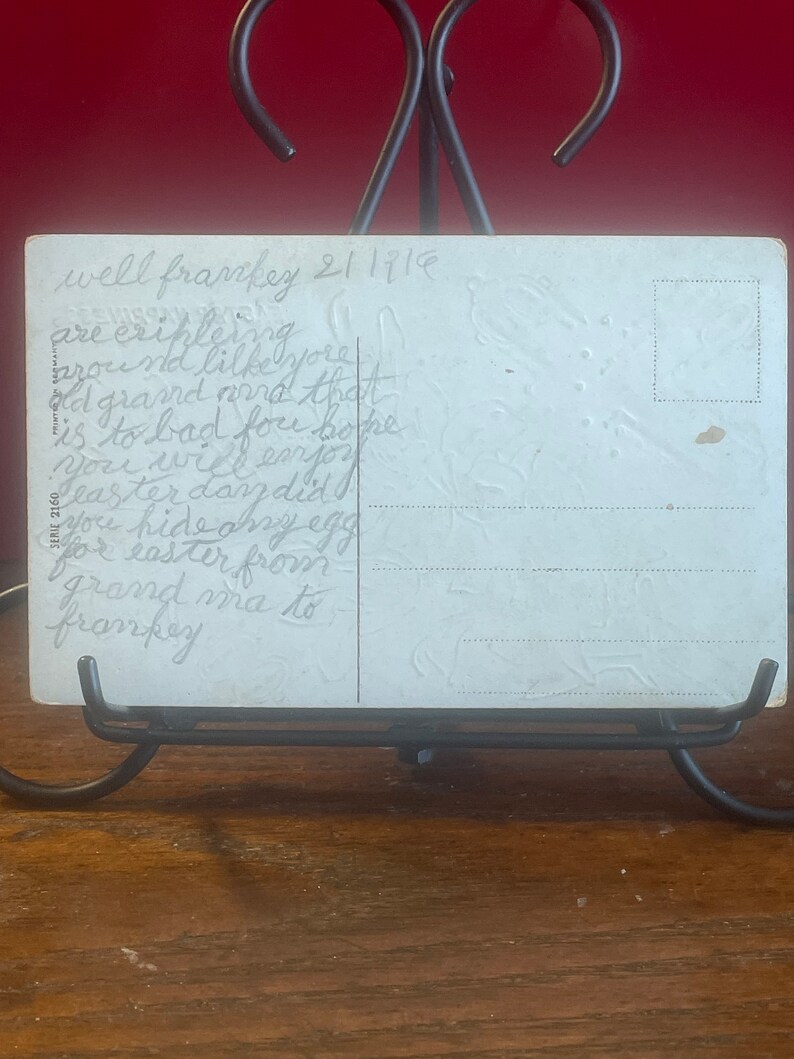 well frankey 21 1916
are cripleing
around lilke yore
old grand ma that
is to bad fou hope
you will enjoy
easter day did
you hide any egg
for easter from
grand ma to
frankey
PRINTED IN GERMANY
SERIE 2160